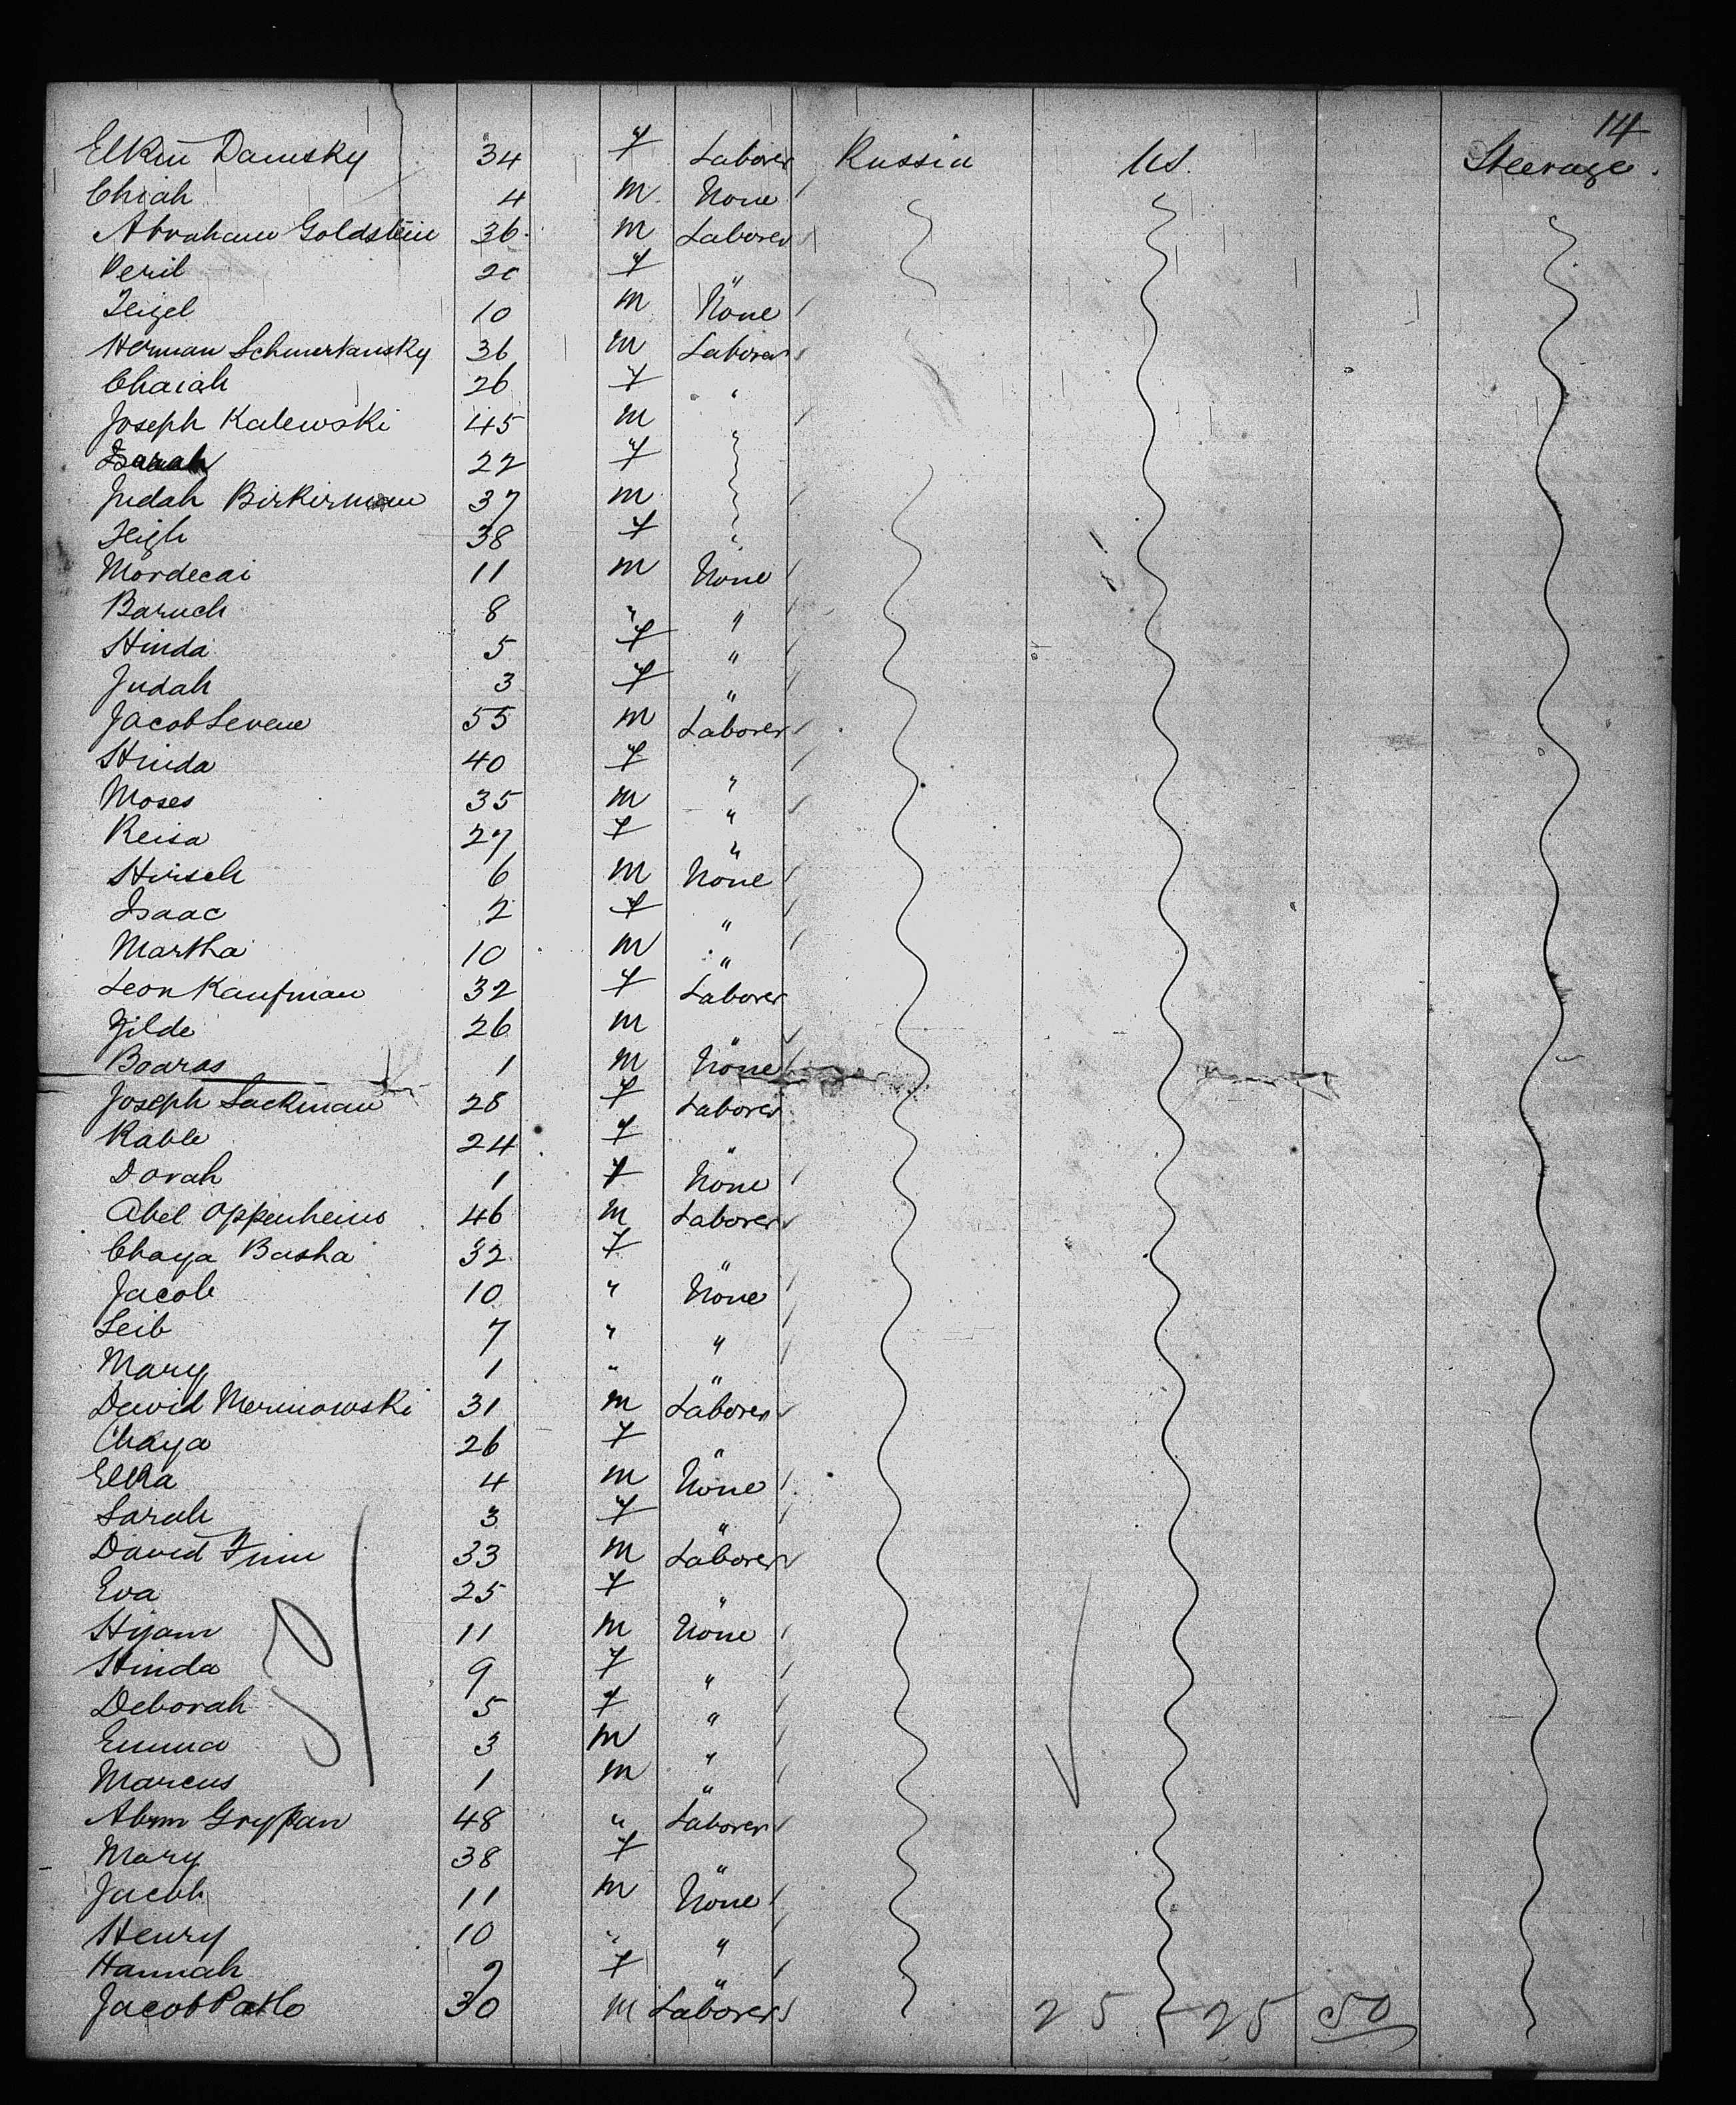 14
Elkin Damsky 34 f Laborer Russia US. Steerage.
Chiah 4 m None
Abraham Goldstein 36 m Laborer
Peril 20 f "
Feigel 10 m None
Herman Schmerkansky 36 m Laborer
Chaiah 26 f "
Joseph Kalewski 45 m "
Sarah 22 f "
Judah Birkirman 37 m "
Feigh 38 f "
Mordecai 11 m None
Baruch 8 " "
Hinda 5 f "
Judah 3 f "
Jacob Levene 55 m Laborer
Hinda 40 f "
Moses 35 m "
Reisa 27 f "
Hirsch 6 m None
Isaac 2 f "
Martha 10 m "
Leon Kaufman 32 f Laborer
Zilde 26 m "
Boaras 1 m None
Joseph Sackman 28 f Laborer
Rable 24 f "
Dorah 1 f None
Abel Oppenheim 46 m Laborer
Chaya Basha 32 f "
Jacob 10 " None
Leib 7 " "
Mary 1 " "
David Merinowski 31 m Laborer
Chaya 26 f "
Elka 4 m None
Sarah 3 f "
David Finn 33 m Laborer
Eva 25 f "
Hyam 11 m None
Hinda 9 f "
Deborah 5 f "
Emma 3 m "
Marcus 1 m "
Abm Grypan 48 " Laborer
Mary 38 f "
Jacob 11 m None
Henry 10 " "
Hannah 9 f "
Jacob Patlo 30 m Laborer
25 25 50